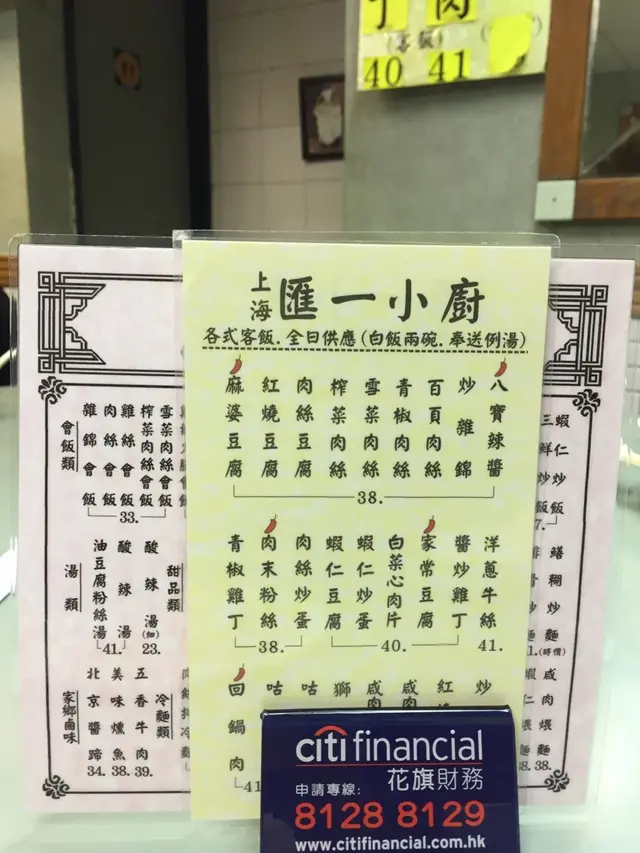 丁 肉
(客飯)
40 41
上海 匯一小廚
各式客飯.全日供應(白飯兩碗.奉送例湯)
八寶辣醬
炒雜錦
百頁肉絲
青椒肉絲
雪菜肉絲
榨菜肉絲
肉絲豆腐
紅燒豆腐
麻婆豆腐
38.
洋蔥牛絲
41.
醬炒雞丁
家常豆腐
白菜心肉片
蝦仁炒蛋
蝦仁豆腐
40.
肉絲炒蛋
肉末粉絲
38.
青椒雞丁
炒
紅
咸肉
咸肉
獅
咕
咕
回鍋肉
41
會飯類
雪菜肉絲會飯
榨菜肉絲會飯
雞絲會飯
肉絲會飯
雜錦會飯
33.
湯類
酸辣湯(細)
23.
酸辣湯
油豆腐粉絲湯
41.
甜品類
冷麵類
家鄉鹵味
五香牛肉
39.
美味燻魚
38.
北京醬蹄
34.
蝦仁炒飯
三鮮炒飯
7.
鱔糊炒麵
(時價)
咸肉煨麵
38.
citifinancial
花旗財務
申請專線:
8128 8129
www.citifinancial.com.hk